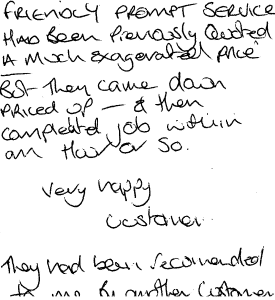 FRIENDLY PROMPT SERVICE
HAD BEEN PREVIOUSLY Quoted
A Much Exagerated Price
BUT They came down
PRICED UP — & then
completed job within
an Hour or so.
Very happy
customer
They had been recomended
to me by another customer